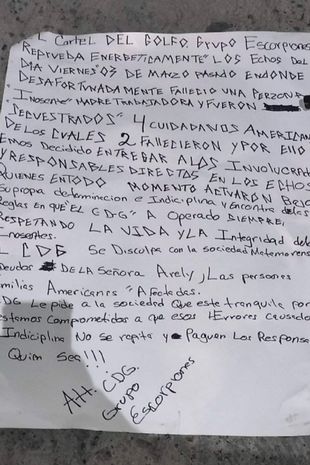 L Cartel DEL GOLFO. Grupo Escorpiones
REPRUEBA ENERGETICAMENTE" LOS Echos Del
DIA VIERNES" 03 DE MARZO PASADO ENDONDE
DESAFORTUNADAMENTE FALLECIO UNA PERZONA
Inosente" MADRE TRABAJADORA Y FUERON
SECUESTRADOS" 4 CUIDADANOS AMERICAN
DE LOS CUALES 2 FALLECIERON Y POR ELLO
Emos Decidido ENTREGAR A LOS INVOLUCRAD
Y RESPONSABLES DIRECTOS EN LOS ECHOS
QUIENES ENTODO MOMENTO ACTUARON BAJO
Supropia determinacion e Indiciplina y Encontra delas
Reglas en que" EL CDG" A Operado SIEMPRE,
RESPETANDO LA VIDA Y LA Integridad del
Inosentes.
L CDG Se Disculpa con la sociedad Matamorens
Deudos DE LA Señora Arely, y Las persones
milias Americanes" Afectadas.
CDG Le pide a la sociedad Que este tranquila por
estamos Comprometidos a que esos Errores causado
Indiciplina No se repita y Paguen Los Responsa
Quien Sea!!!
Att. CDG.
Grupo
Escorpiones